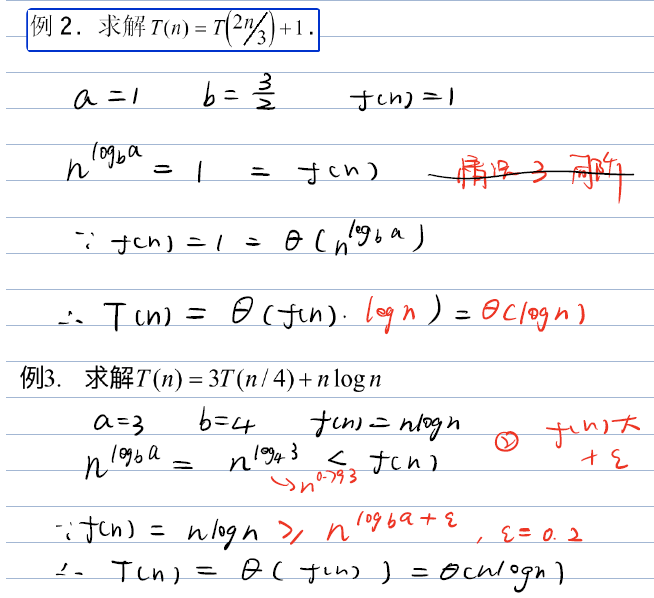 例 2. 求解 T(n) = T(2n/3) + 1.
a = 1 b = 3/2 f(n) = 1
n^{log_b a} = 1 = f(n) 情况 3
∵ f(n) = 1 = θ(n^{log_b a})
∴ T(n) = θ(f(n)·log n) = θ(log n)
例3. 求解 T(n) = 3T(n/4) + n log n
a=3 b=4 f(n) = nlogn ② f(n)大
n^{log_b a} = n^{log_4 3} < f(n) + ε
↳ n^{0.793}
∵ f(n) = nlogn ≥ n^{log_b a + ε}, ε = 0.2
∴ T(n) = θ(f(n)) = θ(nlogn)